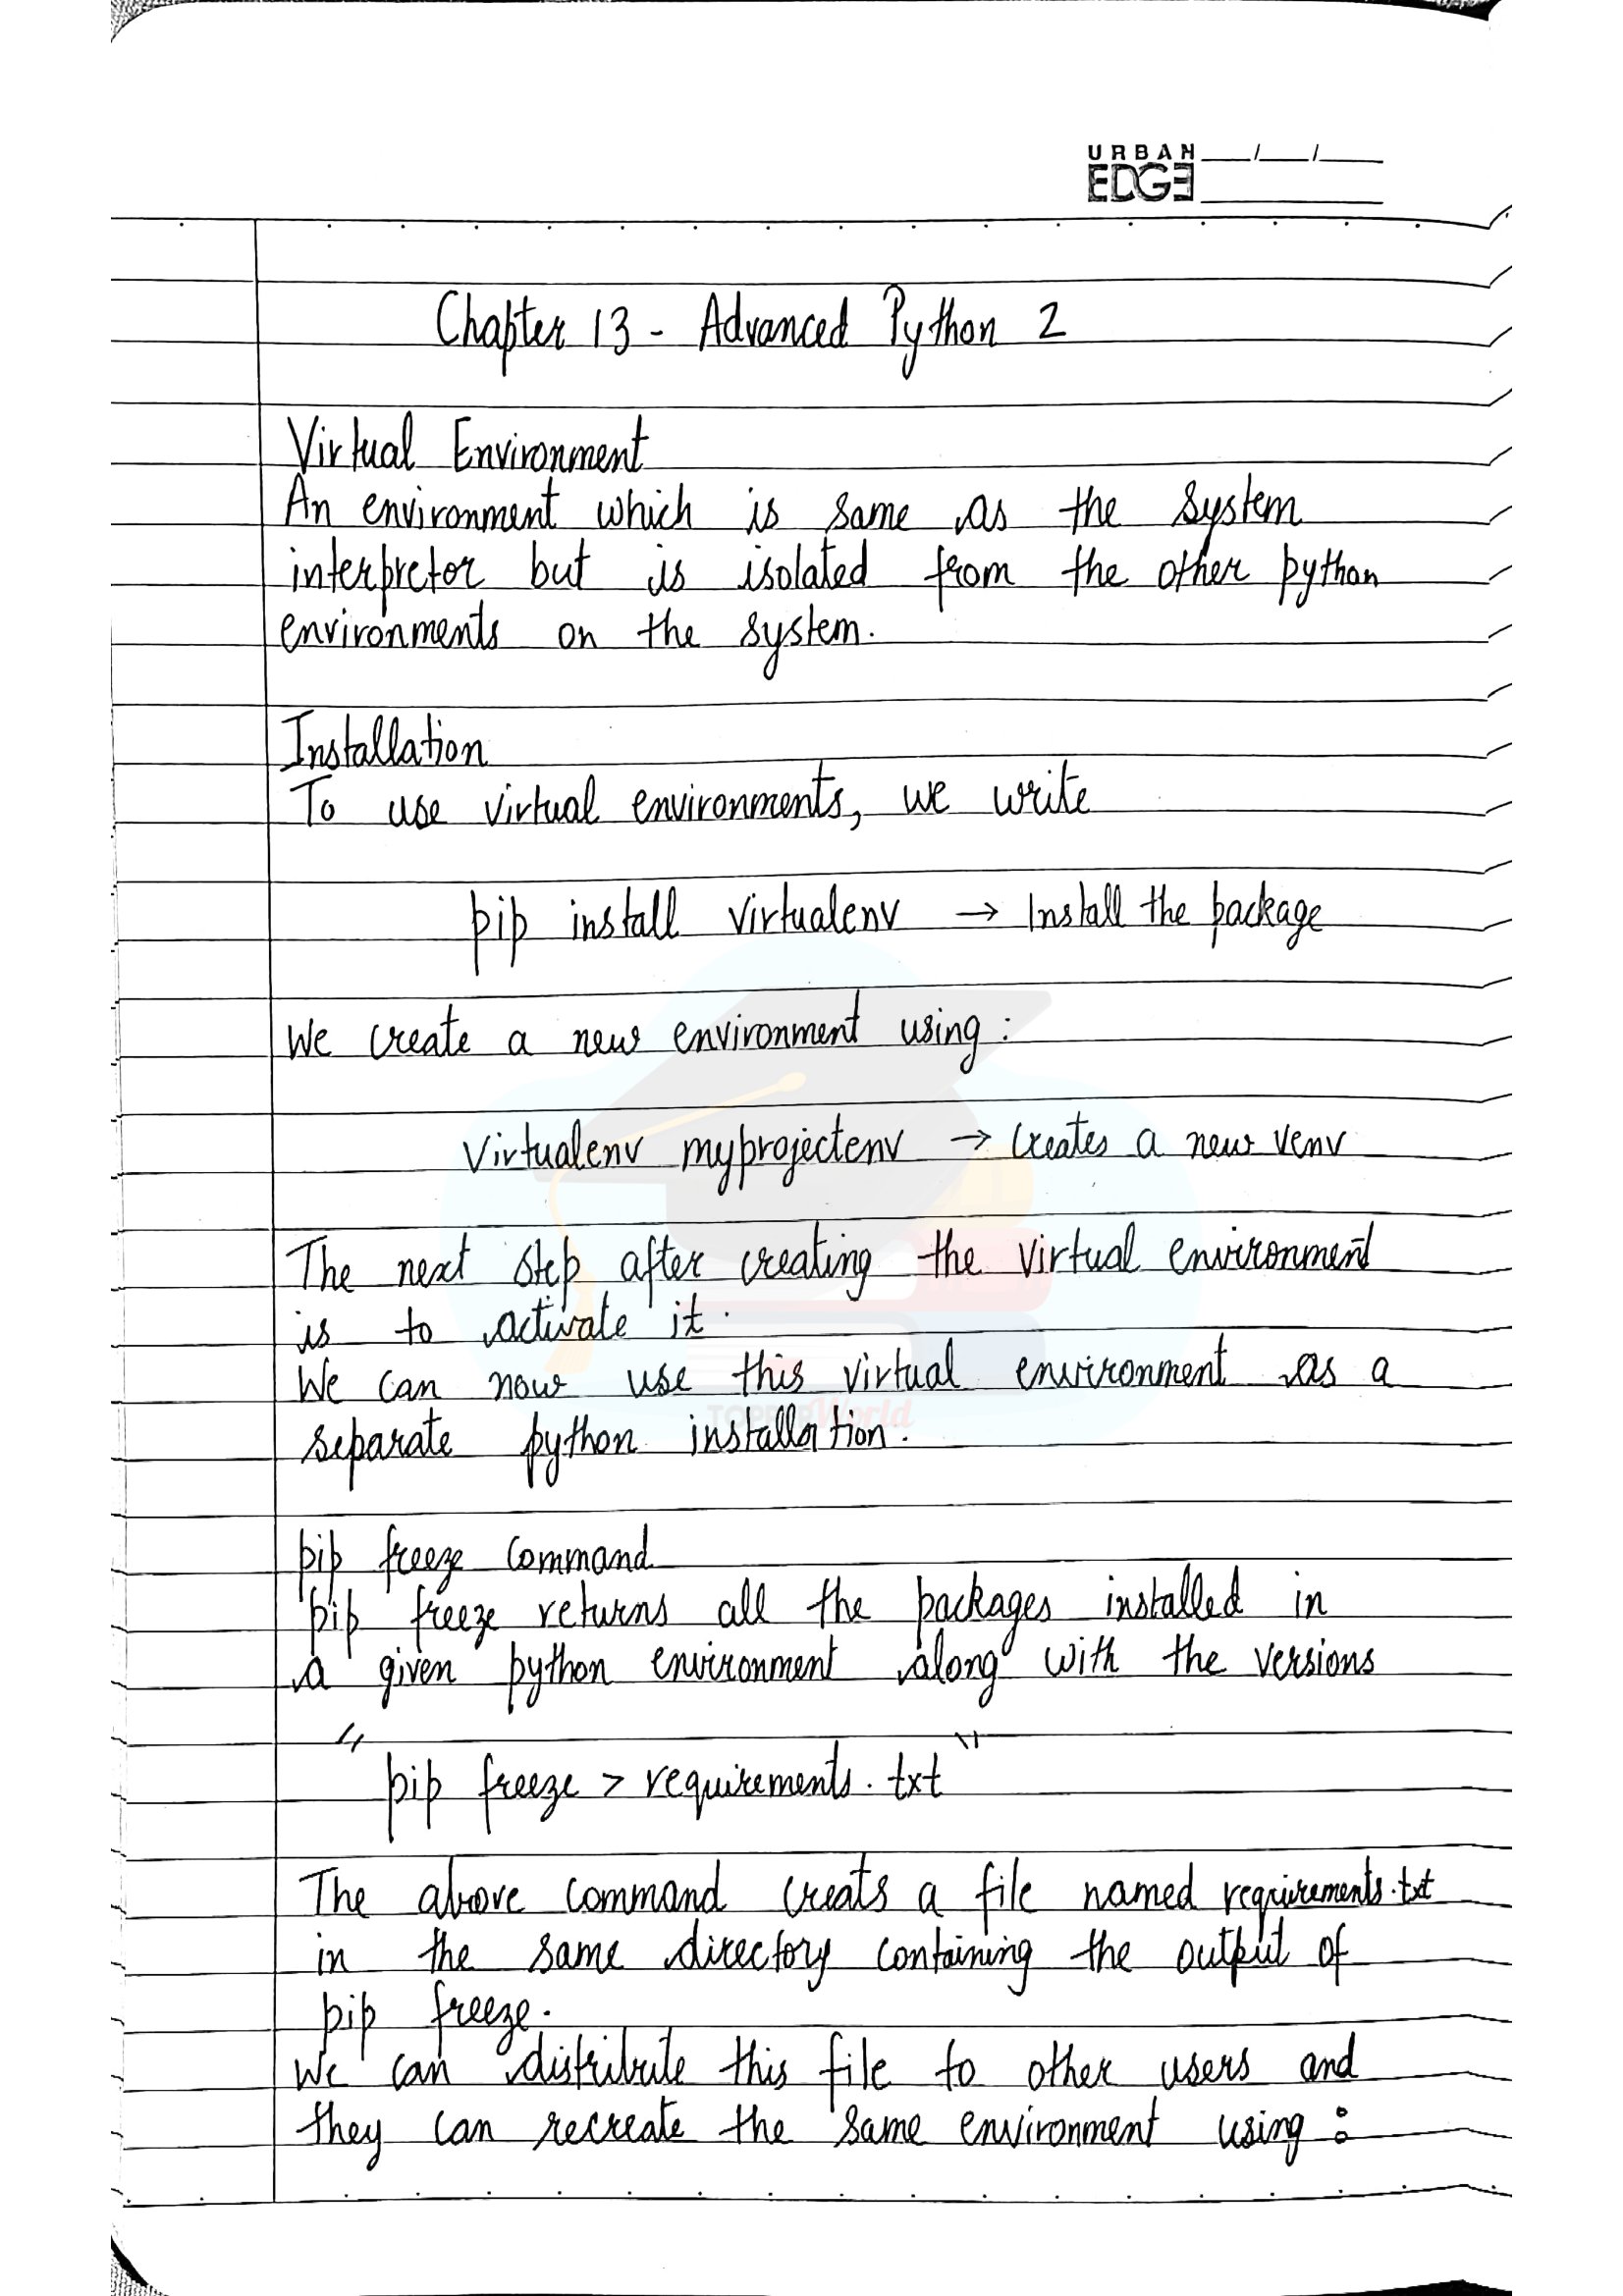 URBAN
EDGE
Chapter 13 - Advanced Python 2
Virtual Environment
An environment which is same as the system
interpretor but is isolated from the other python
environments on the system.
Installation
To use virtual environments, we write
pip install virtualenv → Install the package
We create a new environment using :
Virtualenv myprojectenv → Creates a new venv
The next step after creating the virtual environment
is to activate it.
We can now use this virtual environment as a
separate python installation.
TOPPERWorld
pip freeze command
pip freeze returns all the packages installed in
a given python environment along with the versions
"pip freeze > requirements.txt"
The above command creats a file named requirements.txt
in the same directory containing the output of
pip freeze.
We can distribute this file to other users and
they can recreate the same environment using :